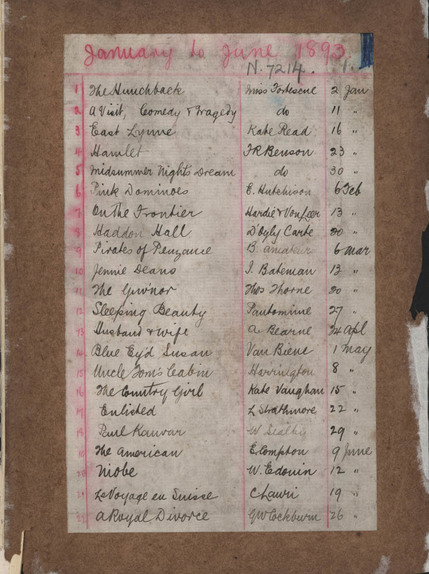 January to June 1893.
N. 7214. 1.
1 The Hunchback Miss Fortescue 2 Jan
2 A Visit, Comedy & Tragedy do 11 "
3 East Lynne Kate Read 16 "
4 Hamlet F R Benson 23 "
5 Midsummer Nights Dream do 30 "
6 Pink Dominoes E. Hutchison 6 Feb
7 On the Frontier Hardie & Von Leer 13 "
8 Haddon Hall D'Oyly Carte 20 "
9 Pirates of Penzance B. Amateur 6 Mar
10 Jennie Deans I. Bateman 12 "
11 The Guvnor Thos Thorne 20 "
12 Sleeping Beauty Pantomime 27 "
13 Husband & Wife A. Bearne 24 Apl
14 Blue Ey'd Susan Van Biene 1 May
15 Uncle Tom's Cabin Harrington 8 "
16 The Country Girl Kate Vaughan 15 "
17 Enlisted L Strathmore 22 "
18 Paul Kauvar W 29 "
19 The American E. Compton 9 June
20 Niobe W. Edouin 12 "
21 Le Voyage en Suisse C Lauri 19 "
22 A Royal Divorce G W Cockburn 26 "